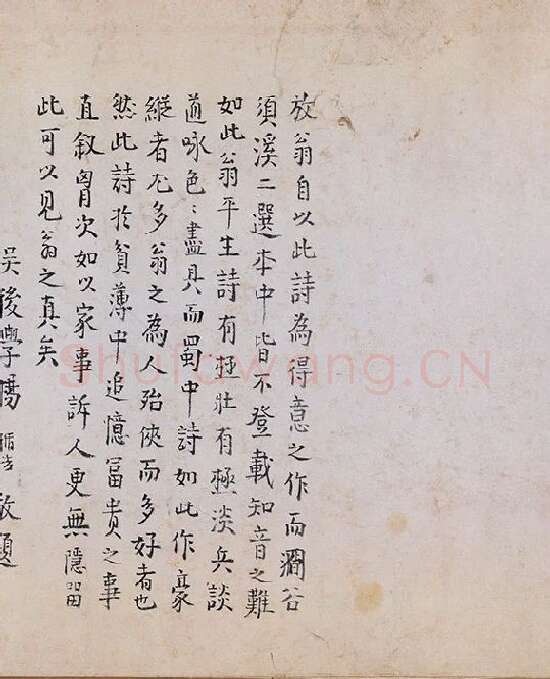 放翁自以此詩為得意之作而澗谷
須溪二選本中皆不登載知音之難
如此翁平生詩有極壯有極淡兵談
道咏色〻盡具而蜀中詩如此作豪
縱者尤多翁之為人殆俠而多好者也
然此詩於貧薄中追憶冨貴之事
直叙胷次如以家事訴人更無隱留
此可以見翁之真矣
吴後學馮
敬題
Shufawang.CN